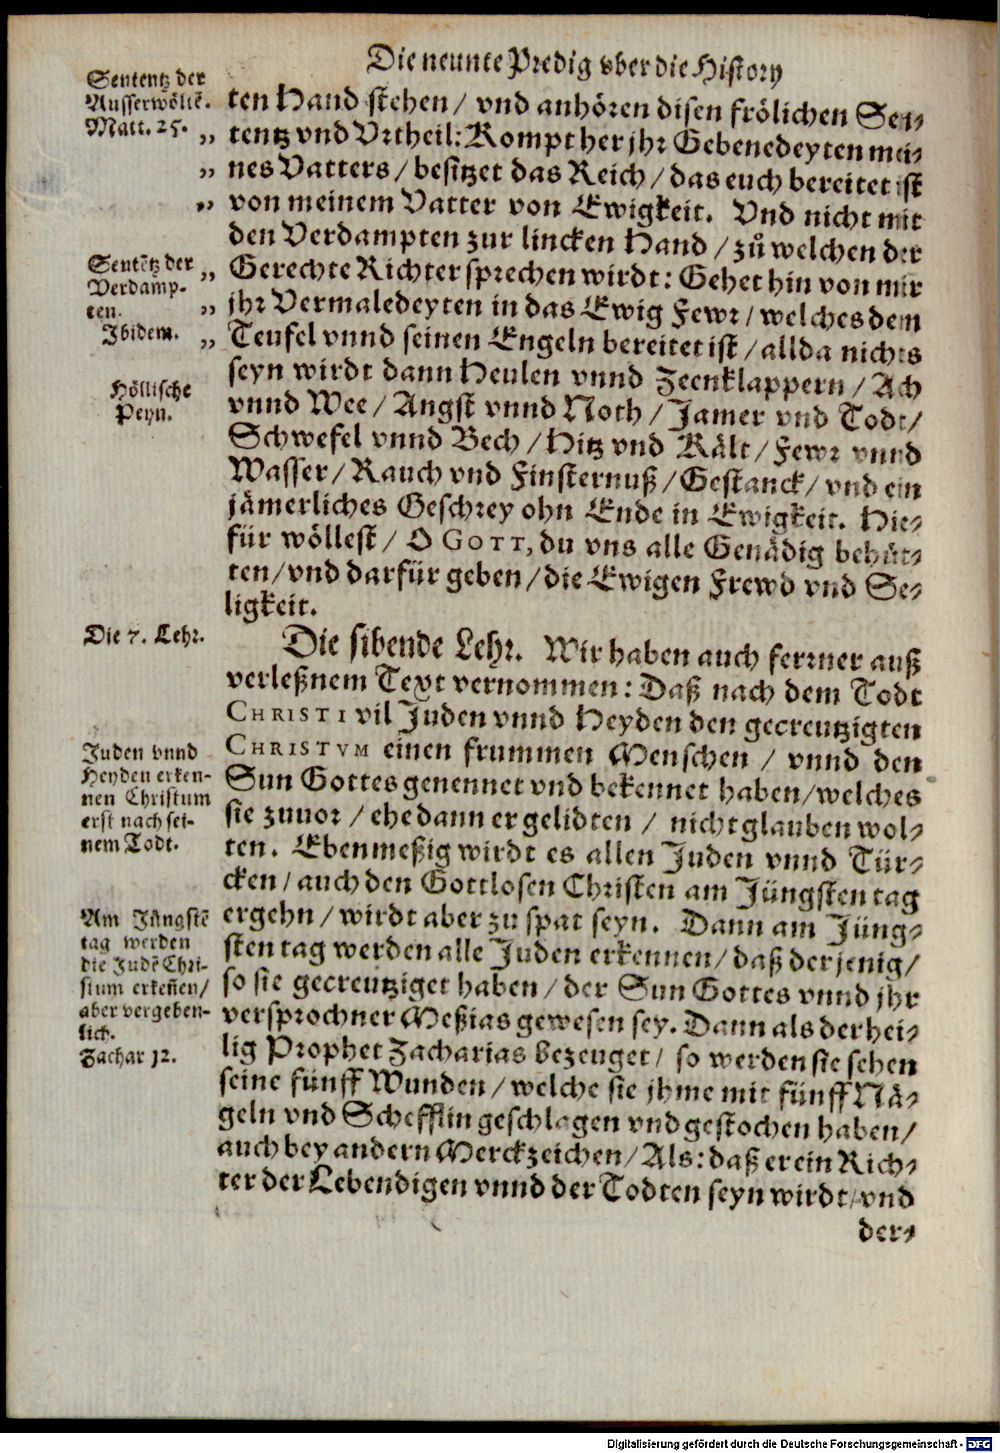 Die neunte Predig vber die History
Sententz der
Ausserwöltẽ.
Matt. 25.
ten Hand stehen / vnd anhören disen frölichen Sen⸗
„ tentz vnd Vrtheil: Kompt her jhr Gebenedeyten mei⸗
„ nes Vatters / besitzet das Reich / das euch bereitet ist
„ von meinem Vatter von Ewigkeit. Vnd nicht mit
den Verdampten zur lincken Hand / zů welchen der
Sentẽtz der
Verdamp-
ten.
Ibidem.
„ Gerechte Richter sprechen wirdt: Gehet hin von mir
„ jhr Vermaledeyten in das Ewig Fewr / welches dem
„ Teufel vnnd seinen Engeln bereitet ist / allda nichts
seyn wirdt dann Heulen vnnd Zeenklappern / Ach
Höllische
Peyn.
vnnd Wee / Angst vnnd Noth / Jamer vnd Todt /
Schwefel vnnd Bech / Hitz vnd Kält / Fewr vnnd
Wasser / Rauch vnd Finsternuß / Gestanck / vnd ein
jämerliches Geschrey ohn Ende in Ewigkeit. Hie⸗
für wöllest / O GOTT, du vns alle Genädig behüt⸗
ten / vnd darfür geben / die Ewigen Frewd vnd Se⸗
ligkeit.
Die 7. Lehr.
Die sibende Lehr. Wir haben auch ferrner auß
verleßnem Text vernommen: Daß nach dem Todt
CHRISTI vil Juden vnnd Heyden den gecreutzigten
Juden vnnd
Heyden erken-
nen Christum
erst nach sei-
nem Todt.
CHRISTVM einen frummen Menschen / vnnd den
Sun Gottes genennet vnd bekennet haben / welches
sie zuuor / ehe dann er gelidten / nicht glauben wol⸗
ten. Ebenmeßig wirdt es allen Juden vnnd Tür⸗
cken / auch den Gottlosen Christen am Jüngsten tag
Am Jüngstẽ
tag werden
die Judẽ Chri-
stum erkeñen /
aber vergeben-
lich.
Zachar 12.
ergehn / wirdt aber zu spat seyn. Dann am Jüng⸗
sten tag werden alle Juden erkennen / daß der jenig /
so sie gecreutziget haben / der Sun Gottes vnnd jhr
versprochner Meßias gewesen sey. Dann als der hei⸗
lig Prophet Zacharias bezeuget / so werden sie sehen
seine fünff Wunden / welche sie jhme mit fünff Nä⸗
geln vnd Schefflin geschlagen vnd gestochen haben /
auch bey andern Merckzeichen / Als: daß er ein Rich⸗
ter der Lebendigen vnnd der Todten seyn wirdt / vnd
der⸗
Digitalisierung gefördert durch die Deutsche Forschungsgemeinschaft - DFG